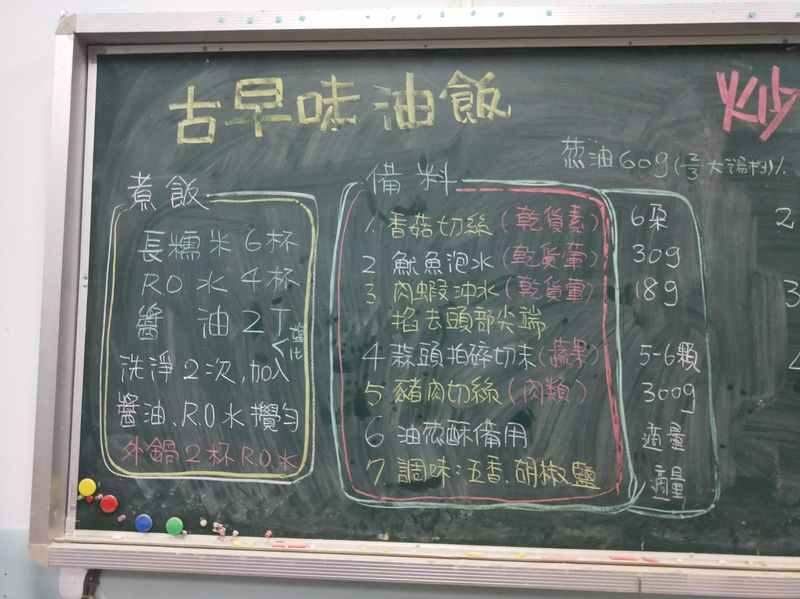 古早味油飯
炒
葱油60g(2/3大湯杓)
煮飯
長糯米6杯
RO水4杯
醬油2T
洗淨2次,加入
醬油、R.O水攪勻
外鍋2杯R.O.水
備料
1 香菇切絲(乾貨素) 6朵
2 魷魚泡水(乾貨葷) 30g
3 肉蝦沖水(乾貨葷) 18g
掐去頭部尖端
4 蒜頭拍碎切末(蔬果) 5-6顆
5 豬肉切絲(肉類) 300g
6 油蔥酥備用 適量
7 調味:五香、胡椒鹽 適量
2
3